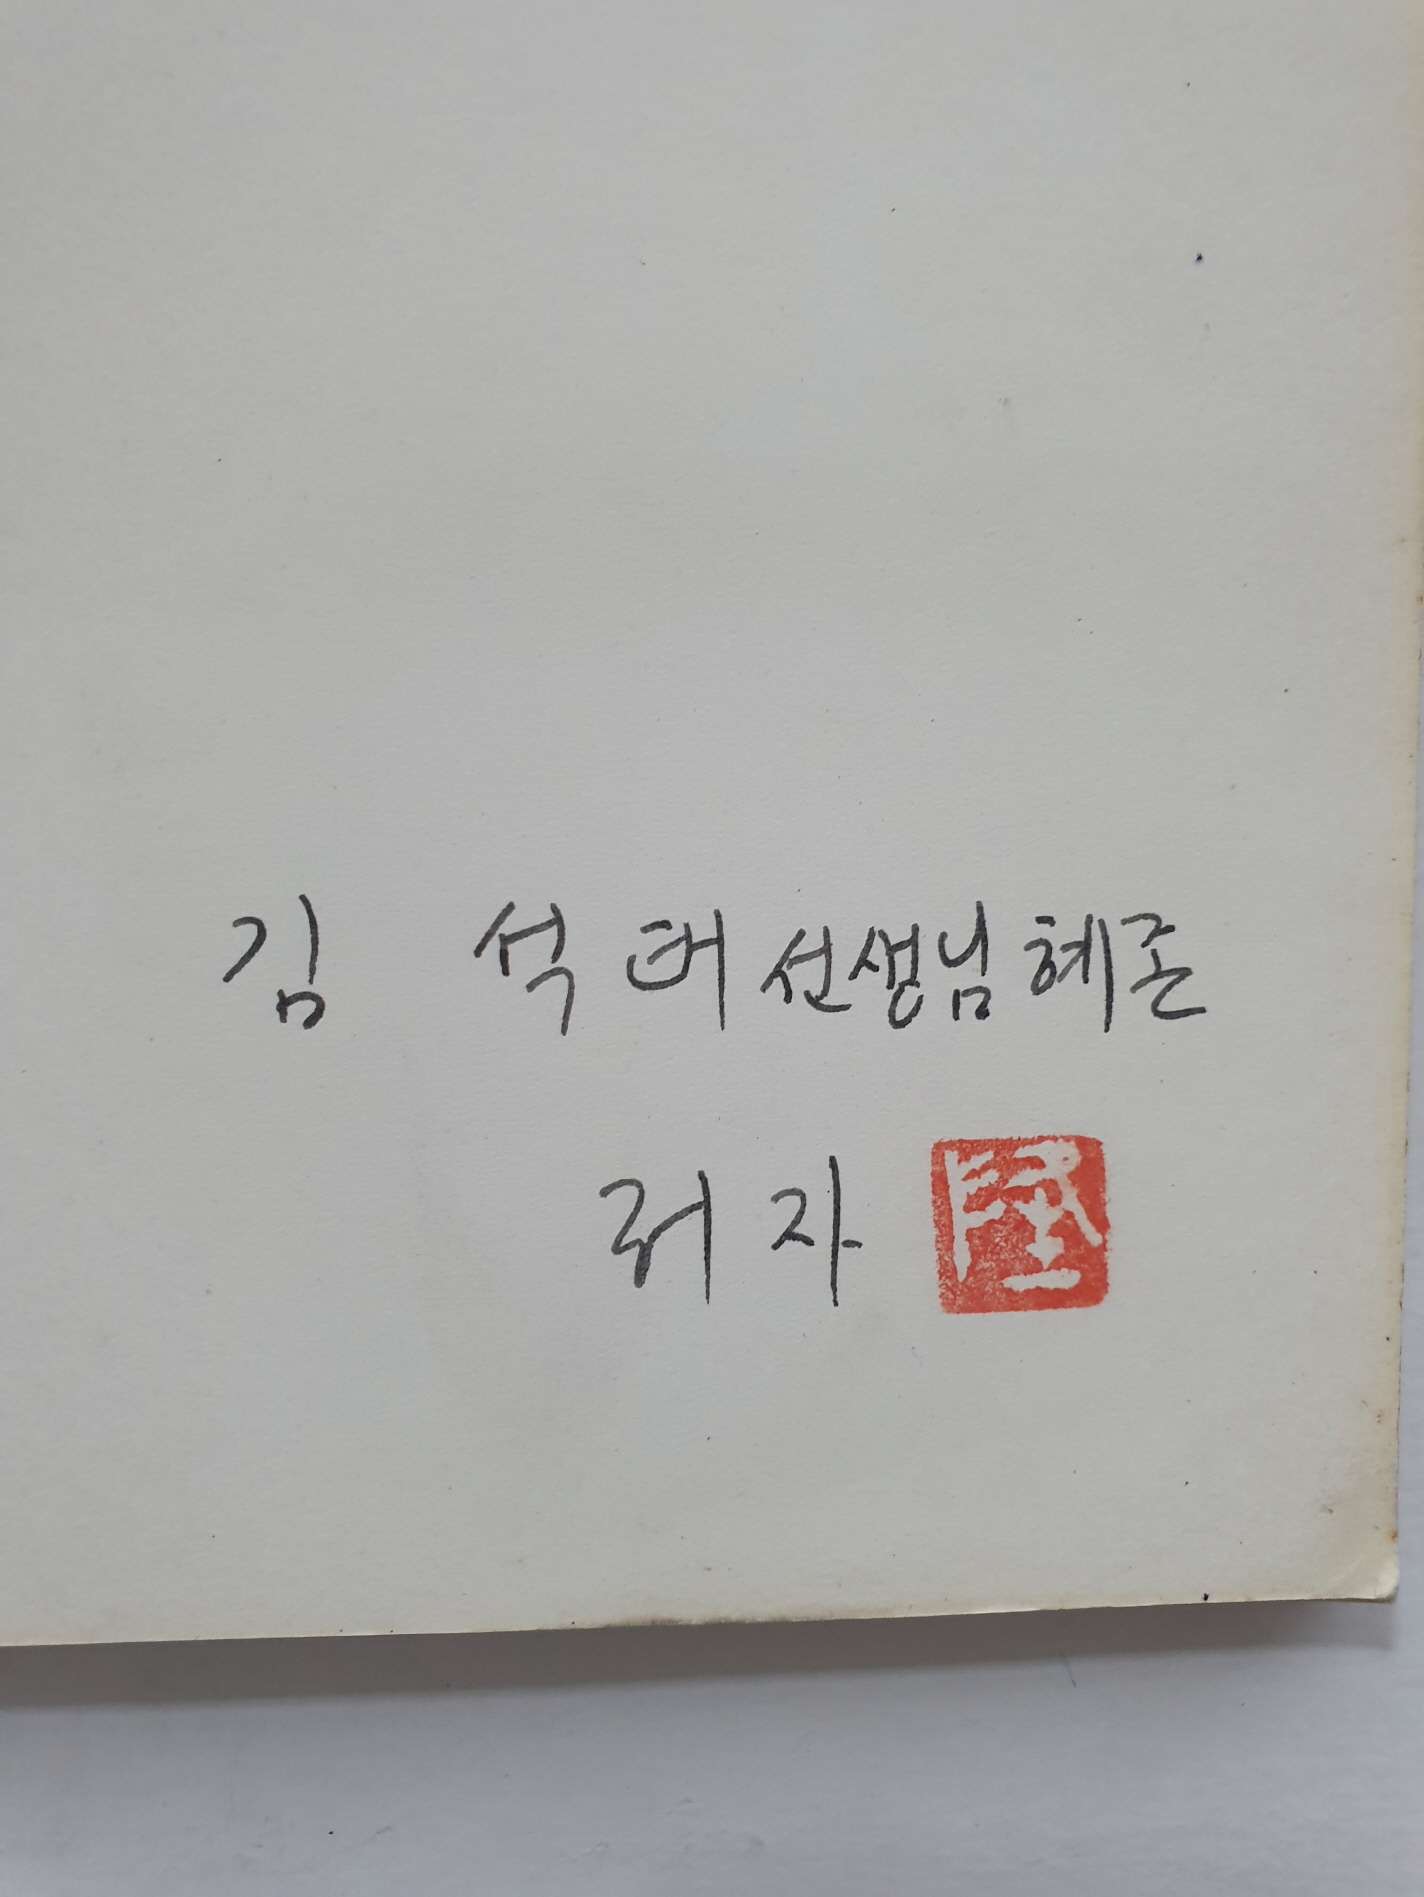 김 석태 선생님 혜존
저자